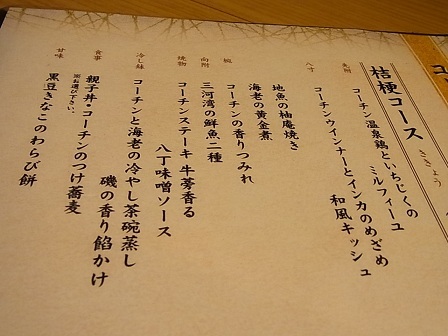 桔梗コース
ききょう
先附
コーチン温泉鶏といちじくの
ミルフィーユ
八寸
コーチンウインナーとインカのめざめ
和風キッシュ
地魚の柚庵焼き
海老の黄金煮
椀
コーチンの香りつみれ
向附
三河湾の鮮魚二種
焼物
コーチンステーキ 牛蒡香る
八丁味噌ソース
冷し鉢
コーチンと海老の冷やし茶碗蒸し
磯の香り餡かけ
食事
親子丼・コーチンのつけ蕎麦
※お選び下さい。
甘味
黒豆きなこのわらび餅